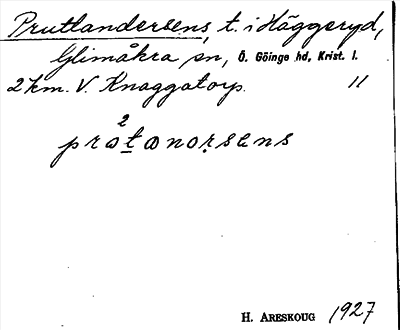 Prutlandersens, t. i Häggeryd,
Glimåkra sn, Ö. Göinge hd, Krist. l.
2 km. V. Knaggatorp. 11
H. ARESKOUG 1927